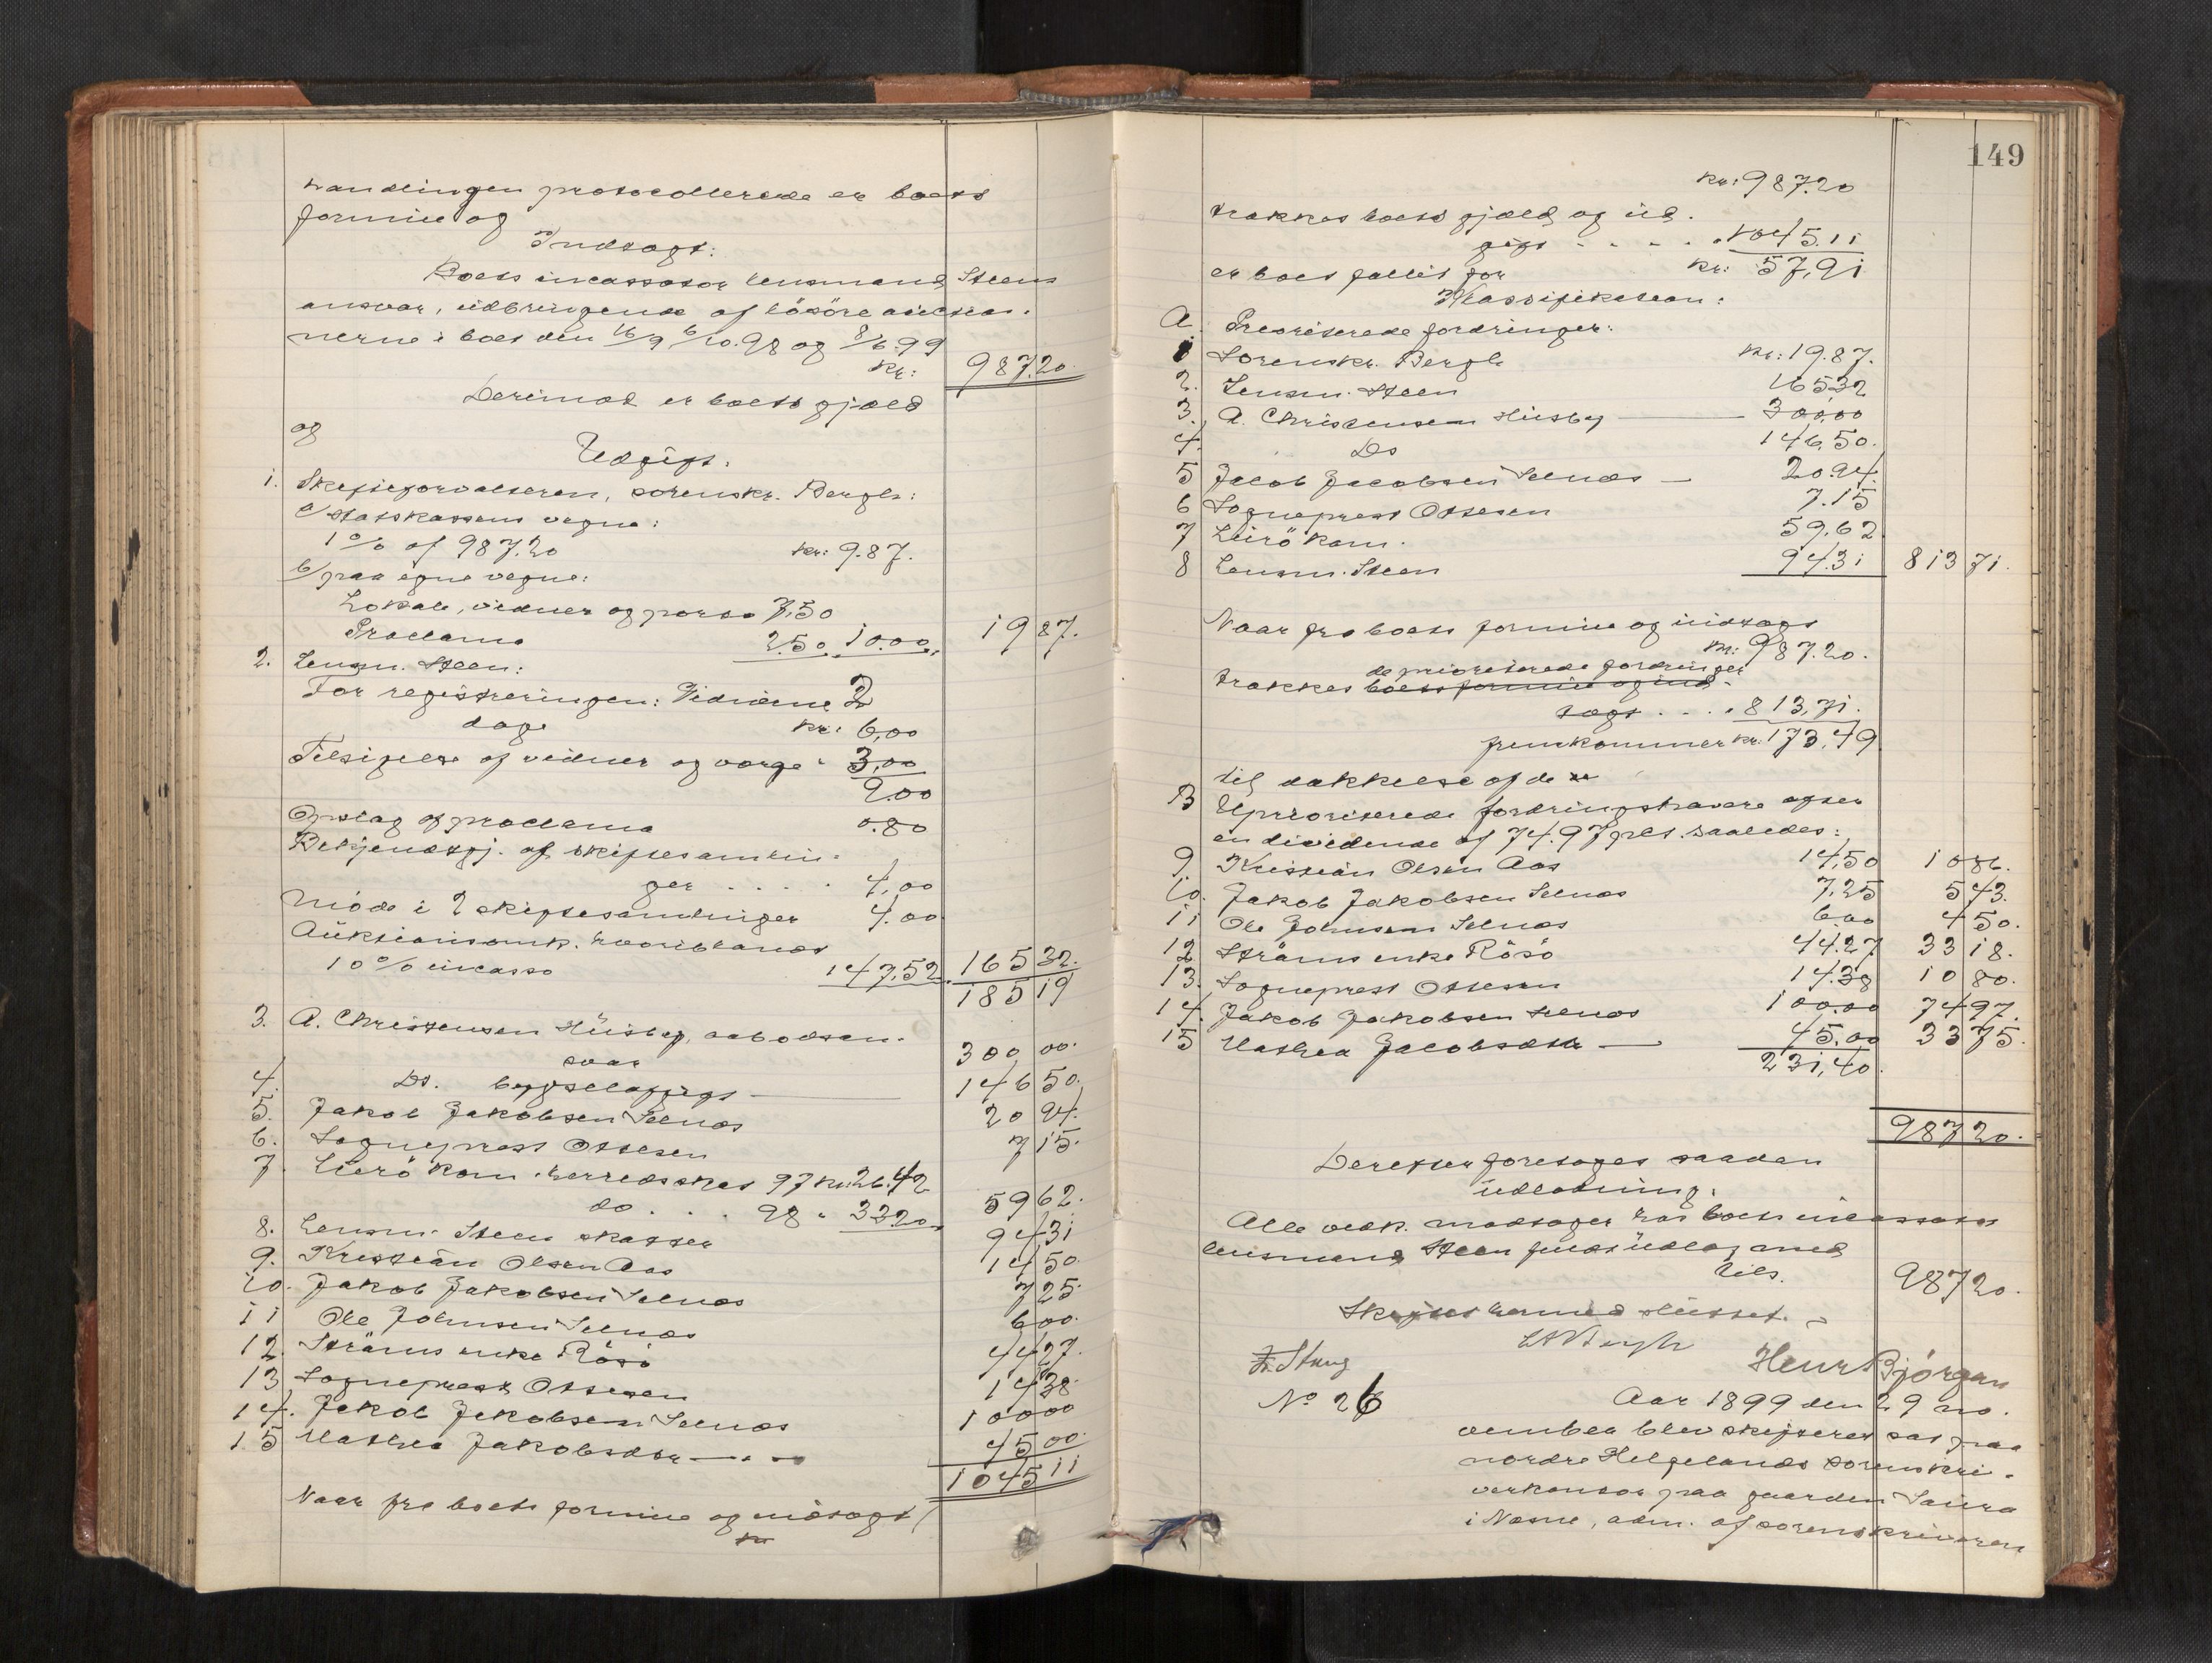 handlingen protocollerede er boets
formue og
Indtægt:
Boets incassator lensmand Steens
ansvar, udbringende af lösöreauctio-
nerne i boet den 16/9 6/10.98 og 8/6.99
Kr: 987.20.
Derimod er boets gjæld
og
Udgift.
1. Skifteforvalteren, sorenskr. Bergh:
a/ statskassens vegne:
1 % af 987.20 Kr: 9.87.
b/ paa egne vegne:
Lokale, vidner og porto 7,50
Proclama 2.50. 10.00. 19 87.
2. Lensm. Steen:
For registreringen: Vidiene 2
dage Kr: 6,00
Tilsigelse af vidner og værge " 3,00
9.00
Opslag af proclama 0.80
Bekjendtgj. af skiftesamlin-
ger . . . . . 4,00
Möde i 2 skiftesamlinger 4.00
Auktionsomk. hvoriblandt
10 % incasso 147,52. 165 32.
185 19
3. A. Christensen Huusby, aabodsan-
svar 300 00.
4. Do. bygselafgift 146 50.
5. Jakob Jakobsen Selnæs 20 94.
6. Sogneprest Ottesen 7 15.
7. Lurö kom. herredsskat 97 Kr: 26.42
do . . . 98 " 33.20. 59 62.
8. Lensm. Steen skatter 94 31
9. Kristian Olsen Aas 14 50.
10. Jakob Jakobsen Selnæs 7 25.
11 Ole Johnsen Selnæs 6 00.
12. Ströms enke Rösö 44 27.
13 Sogneprest Ottesen 14 38.
14. Jakob Jakobsen Selnæs 100 00
15 Mathea Jakobsdtr — " — 45 00.
1045 11
Naar fra boets formue og indtægt
149
Kr: 987.20
trækkes boets gjæld og ud-
gift - - - - " 1045.11
er boet fallit for Kr: 57,91
Klassifikation:
A. Prioriterede fordringer:
1 Sorenskr. Bergh Kr: 19.87.
2. Lensm. Steen 165,32
3. A. Christensen Huusby — 300,00
4. Do 146,50.
5 Jacob Jacobsen Selnæs — 20.94.
6 Sogneprest Ottesen 7.15
7 Lurö kom. 59,62
8 Lensm. Steen 94.31 813 71.
Naar fra boets formue og indtægt
Kr: 987.20.
de prioriterede fordringer
trækkes boets formue og ind-
tægt . . . . " 813,71.
fremkommer Kr: 173,49
til dækkelse af de
B Uprioriterede fordringshavere efter
en dividende af 74.97 pct. saaledes:
9. Kristian Olsen Aas 14,50 10 86.
10. Jakob Jakobsen Selnæs 7,25 5 43.
11 Ole Johnsen Selnæs 6,00 4 50.
12 Ströms enke Rösö 44.27 33 18.
13. Sogneprest Ottesen 14.38 10 80.
14. Jakob Jakobsen Selnæs 100.00 74 97.
15 Mathea Jacobsdtr — 45.00 33 75.
231,40.
987 20.
Derefter foretages saadan
udlodning.
Alle vedk. modtager hos boets incassator
lensmand Steen fuldt udlæg med
tils. 987 20.
Skiftet hermed sluttet. –
Henr Bjørgan
No 26 Aar 1899 den 29 no-
vember blev skifteret sat paa
nordre Helgelands sorenskri-
verkontor paa gaarden Saura
i Nesne, adm. af sorenskriveren